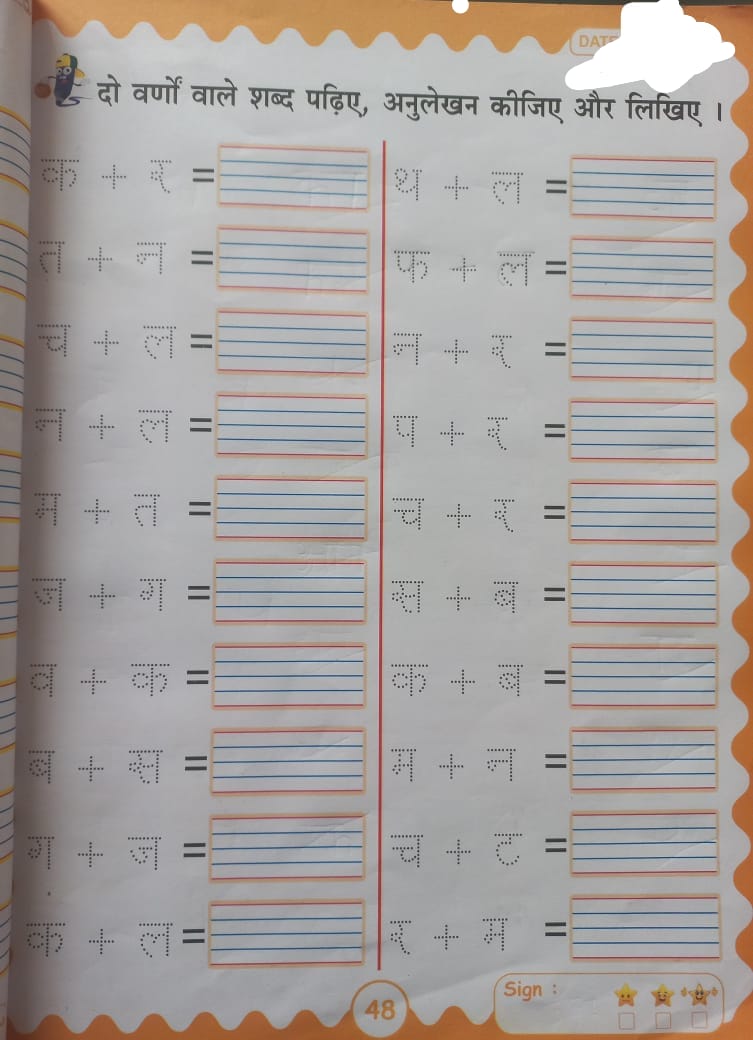 DATE
दो वर्णों वाले शब्द पढ़िए, अनुलेखन कीजिए और लिखिए ।
क + र =
त + न =
च + ल =
न + ल =
म + त =
ज + ग =
व + क =
ब + स =
ग + ज =
क + ल =
थ + ल =
फ + ल =
न + र =
प + र =
च + र =
स + ब =
क + ब =
म + न =
च + ट =
र + म =
48
Sign :